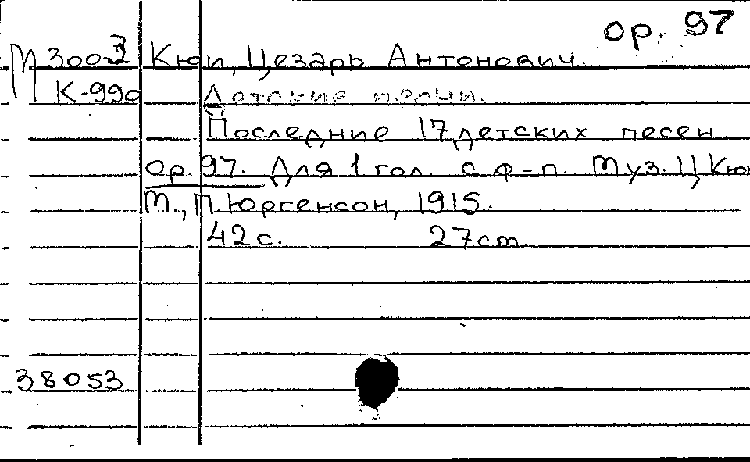 ор. 97
М 3003 Кюи, Цезарь Антонович.
К-990 Детские песни.
Последние 17 детских песен
ор. 97. Для 1 гол. с ф-п. Муз. Ц Кюи
М., П. Юргенсон, 1915.
42 с. 27 cm
38053